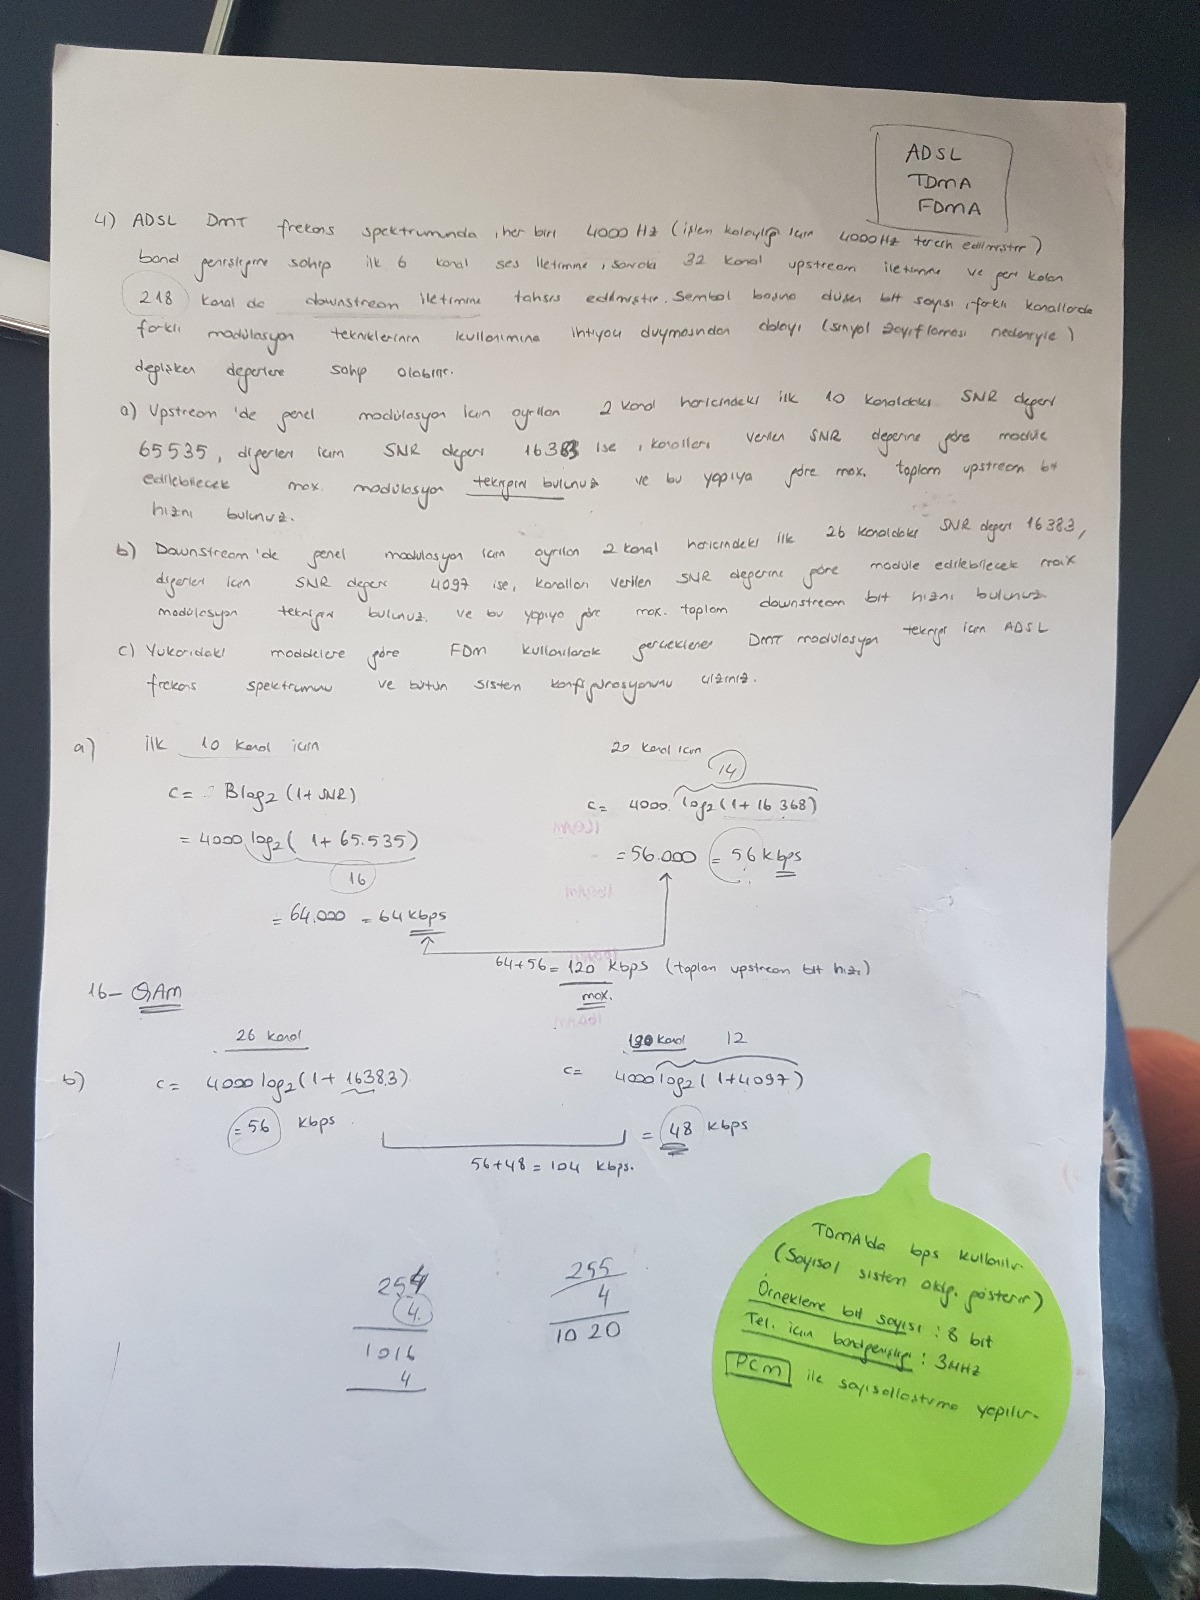 ADSL
TDMA
FDMA
4) ADSL DMT frekans spektrumunda, her biri 4000 Hz (işlem kolaylığı için 4000Hz tercih edilmiştir)
band genişliğine sahip ilk 6 kanal ses iletimine, sonraki 32 kanal upstream iletimine ve geri kalan
218 kanal da downstream iletimine tahsis edilmiştir. Sembol başına düşen bit sayısı, farklı kanallarda
farklı modülasyon tekniklerinin kullanımına ihtiyaç duymasından dolayı (sinyal zayıflaması nedeniyle)
değişken değerlere sahip olabilir.
a) Upstream 'de genel modülasyon için ayrılan 2 kanal haricindeki ilk 10 kanaldaki SNR değeri
65535, diğerleri için SNR değeri 16383 ise, kanalları verilen SNR değerine göre modüle
edilebilecek max. modülasyon tekniğini bulunuz ve bu yapıya göre max. toplam upstream bit
hızını bulunuz.
b) Downstream'de genel modülasyon için ayrılan 2 kanal haricindeki ilk 26 kanaldaki SNR değeri 16383,
diğerleri için SNR değeri 4097 ise, kanalları verilen SNR değerine göre module edilebilecek max
modülasyon tekniğini bulunuz. ve bu yapıya göre max. toplam downstream bit hızını bulunuz.
c) Yukarıdaki maddelere göre FDM kullanılarak gerçeklenen DMT modülasyon tekniği için ADSL
frekans spektrumunu ve bütün sistem konfigürasyonunu çiziniz.
a) ilk 10 kanal için
c= Blog2 (1+SNR)
= 4000 log2 ( 1+ 65.535)
16
= 64.000 = 64 kbps
20 kanal için
14
c= 4000. log2 (1+ 16 368)
= 56.000 = 56 kbps
64+56 = 120 kbps (toplam upstream bit hızı)
max.
16- QAM
b) 26 kanal
c= 4000 log2 (1+ 16383)
= 56 kbps
190 kanal 12
c= 4000 log2 ( 1+4097)
= 48 kbps
56+48 = 104 kbps.
254
4.
1016
4
255
4
1020
TDMA'da bps kullanılır
(Sayısal sistem oldğ. gösterir)
Örnekleme bit sayısı : 8 bit
Tel. için bandgenişliği : 3MHz
PCM ile sayısallaştırma yapılır.